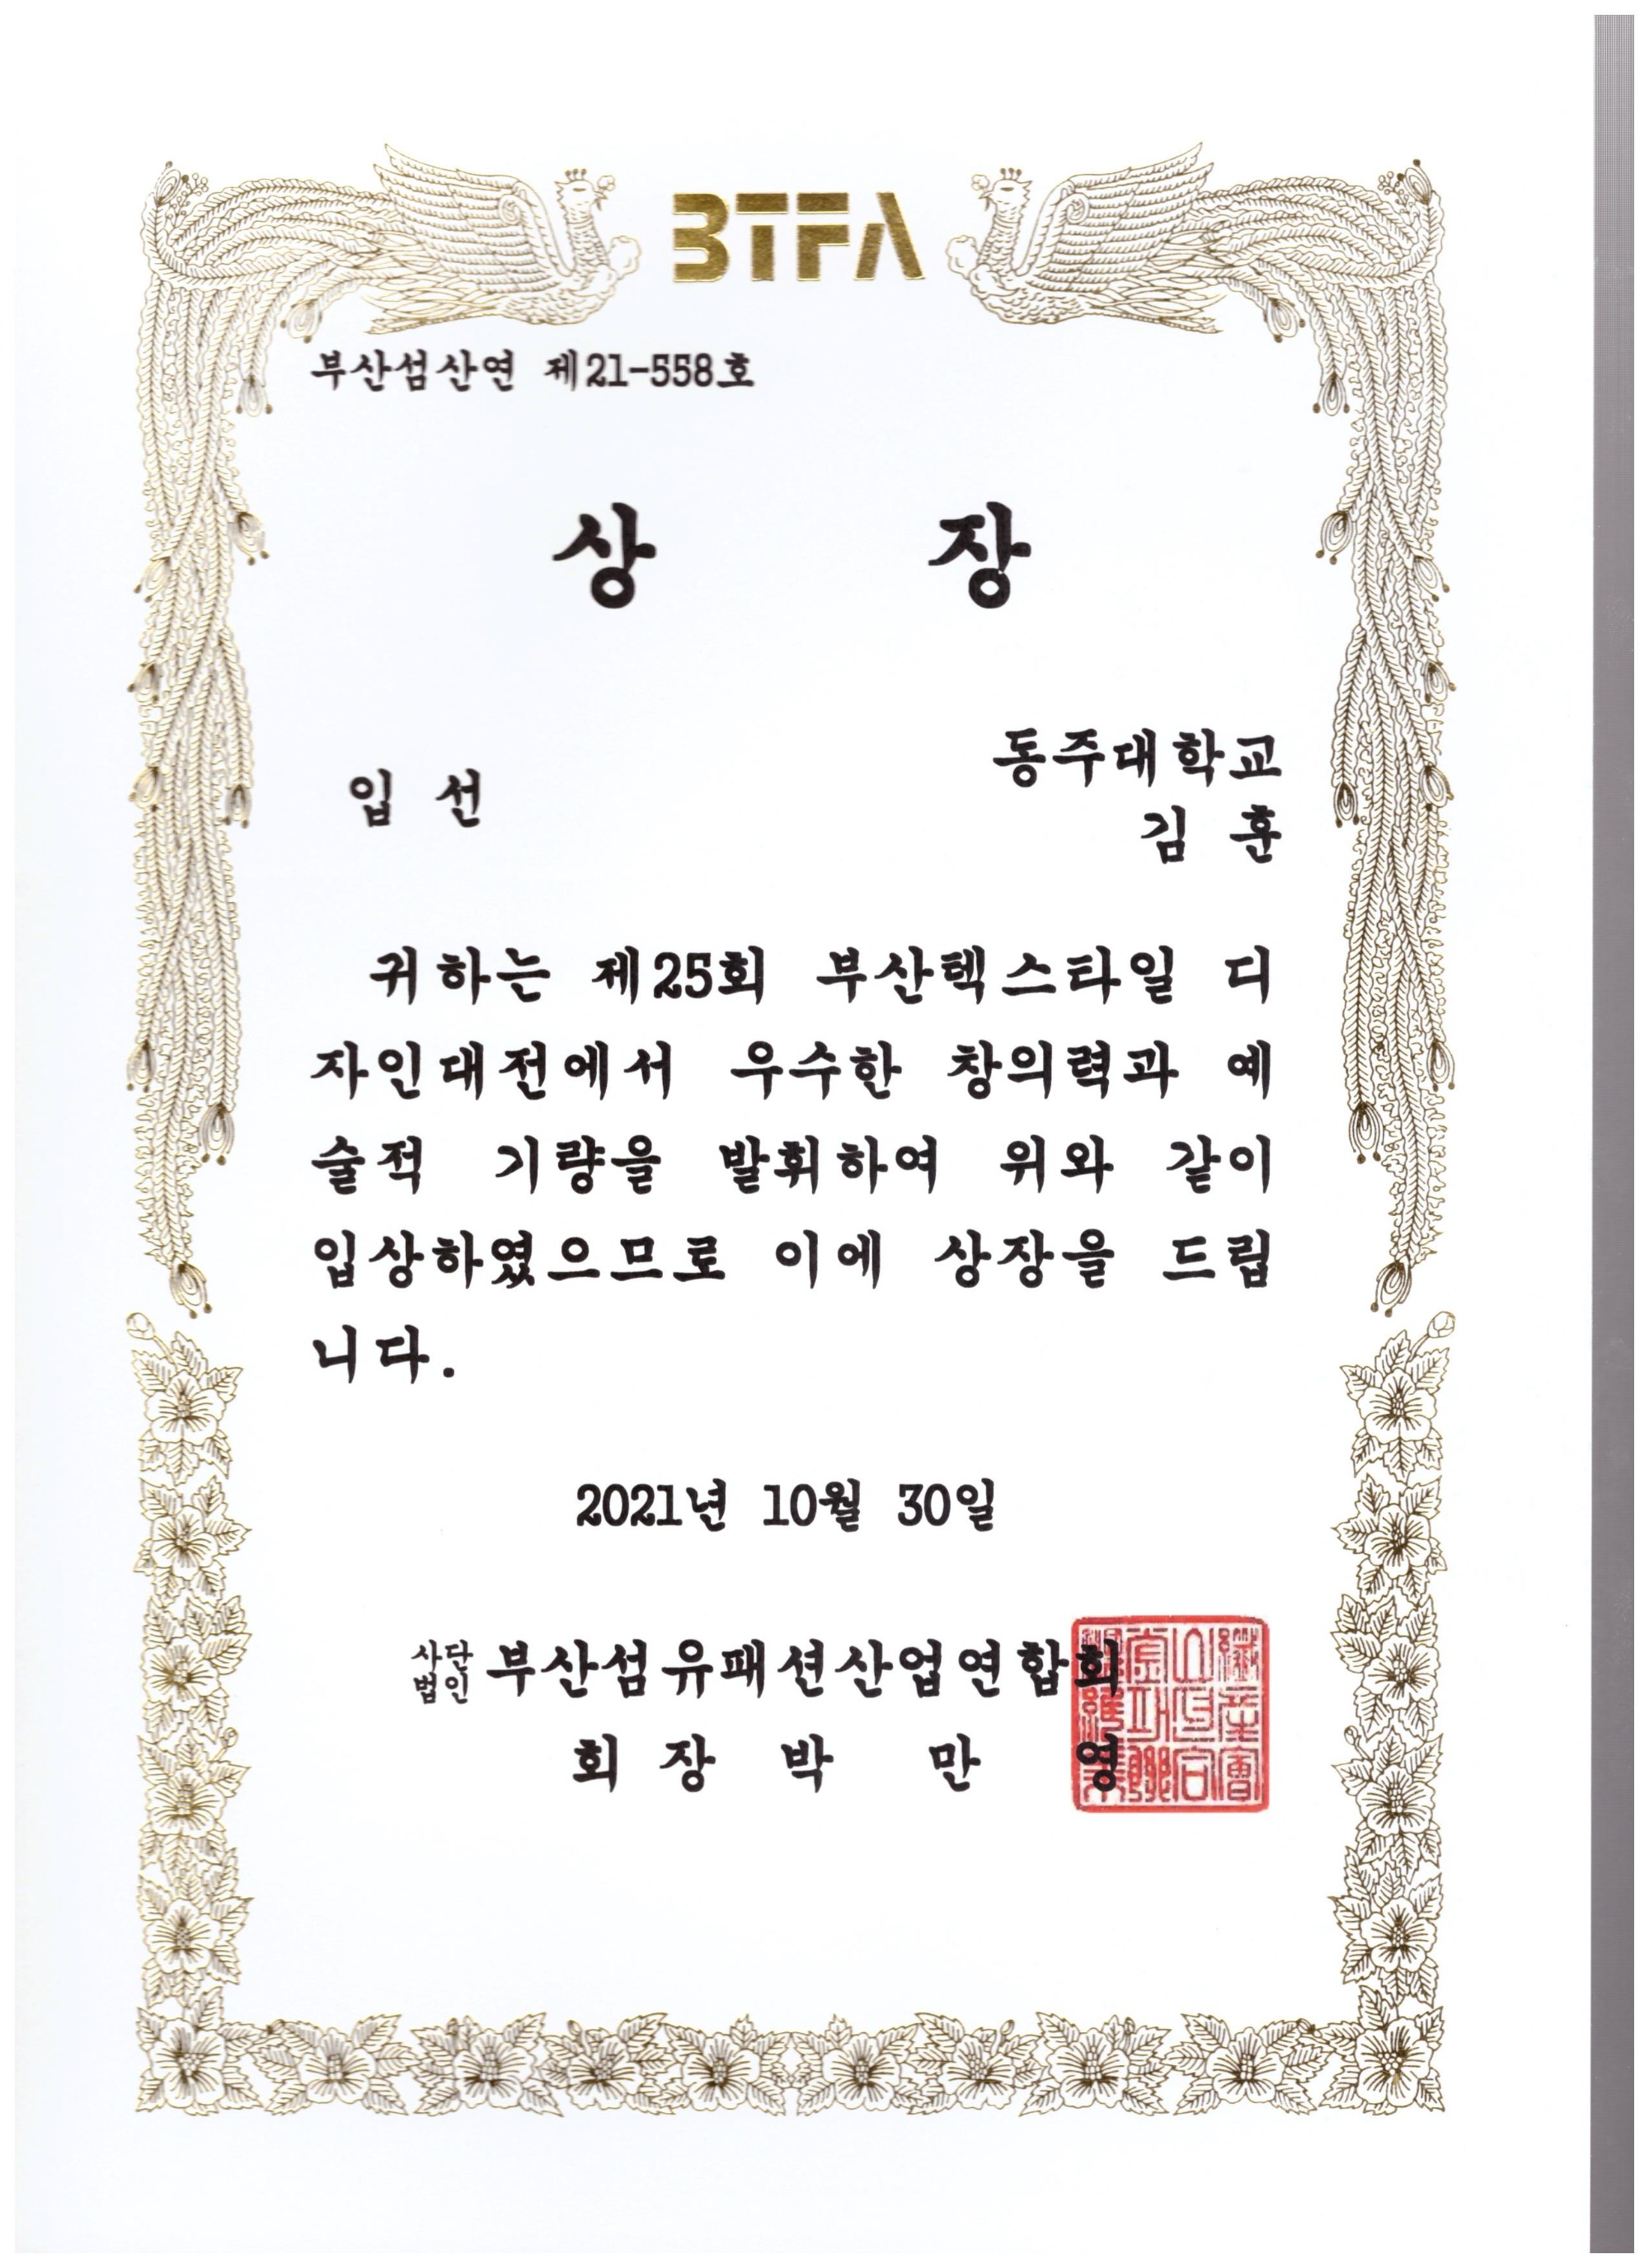 BTFA
부산섬산연 제21-558호
상 장
입 선
동주대학교
김 훈
귀하는 제25회 부산텍스타일 디
자인대전에서 우수한 창의력과 예
술적 기량을 발휘하여 위와 같이
입상하였으므로 이에 상장을 드립
니다.
2021년 10월 30일
사단법인 부산섬유패션산업연합회
회 장 박 만 영